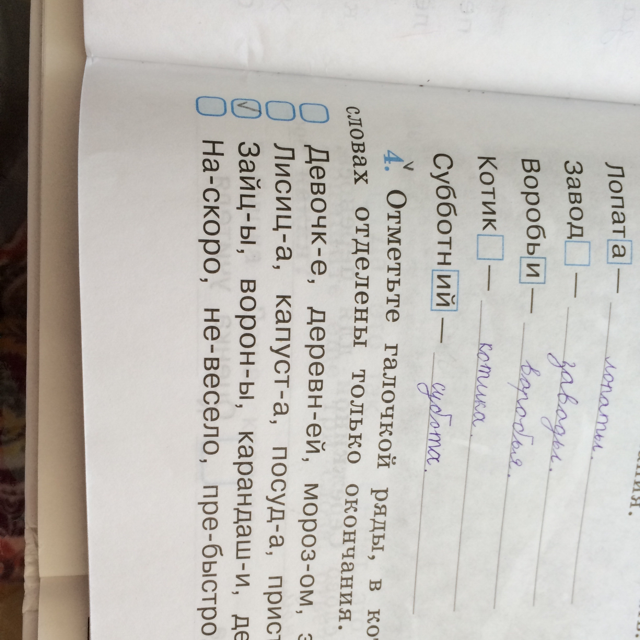 Лопата — лопаты.
Завод — заводы.
Воробьи — воробья.
Котик — котика
Субботний —
4. Отметьте галочкой ряды, в
словах отделены только окончания.
Девочк-е, деревн-ей, мороз-ом,
Лисиц-а, капуст-а, посуд-а,
✓ Зайц-ы, ворон-ы, карандаш-и,
На-скоро, не-весело, пре-быстро